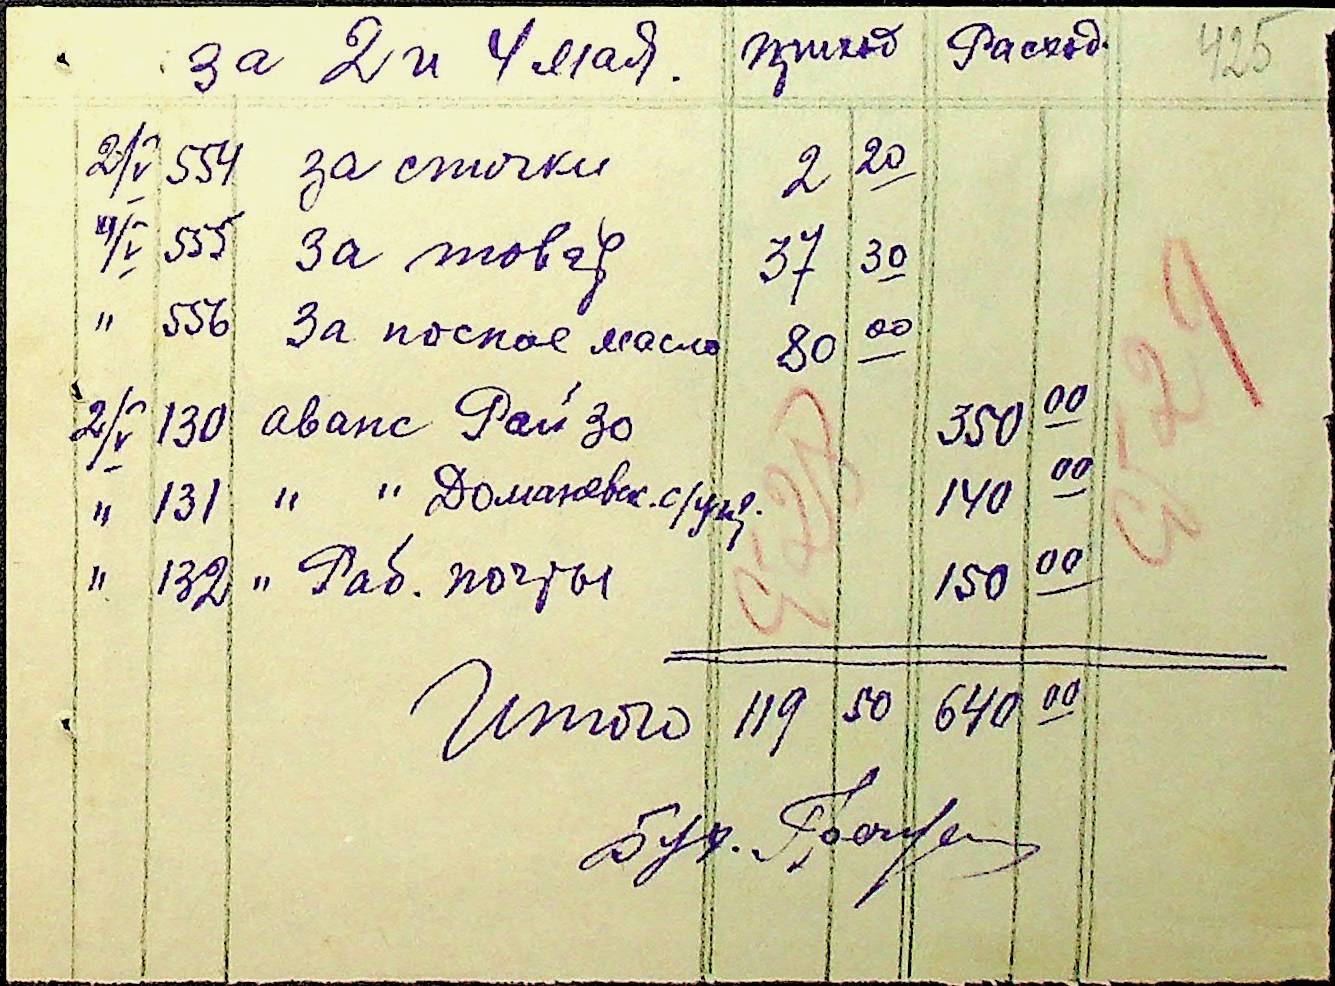 за 2 и 4 мая. приход Расход. 425
2/V 554 за спички 2 20
4/V 555 за товар 37 30
" 556 За посное масло 80 00
2/V 130 аванс Рай ЗО 350 00
" 131 " " Доманевск. с/упр. 140 00
" 132 " Раб. почты 150 00
Итого 119 50 640 00
Бух.